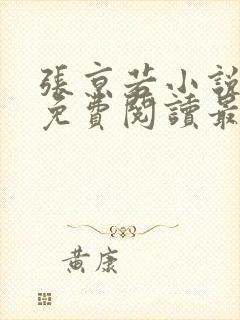 張京若小說
免費閱讀最
黃康